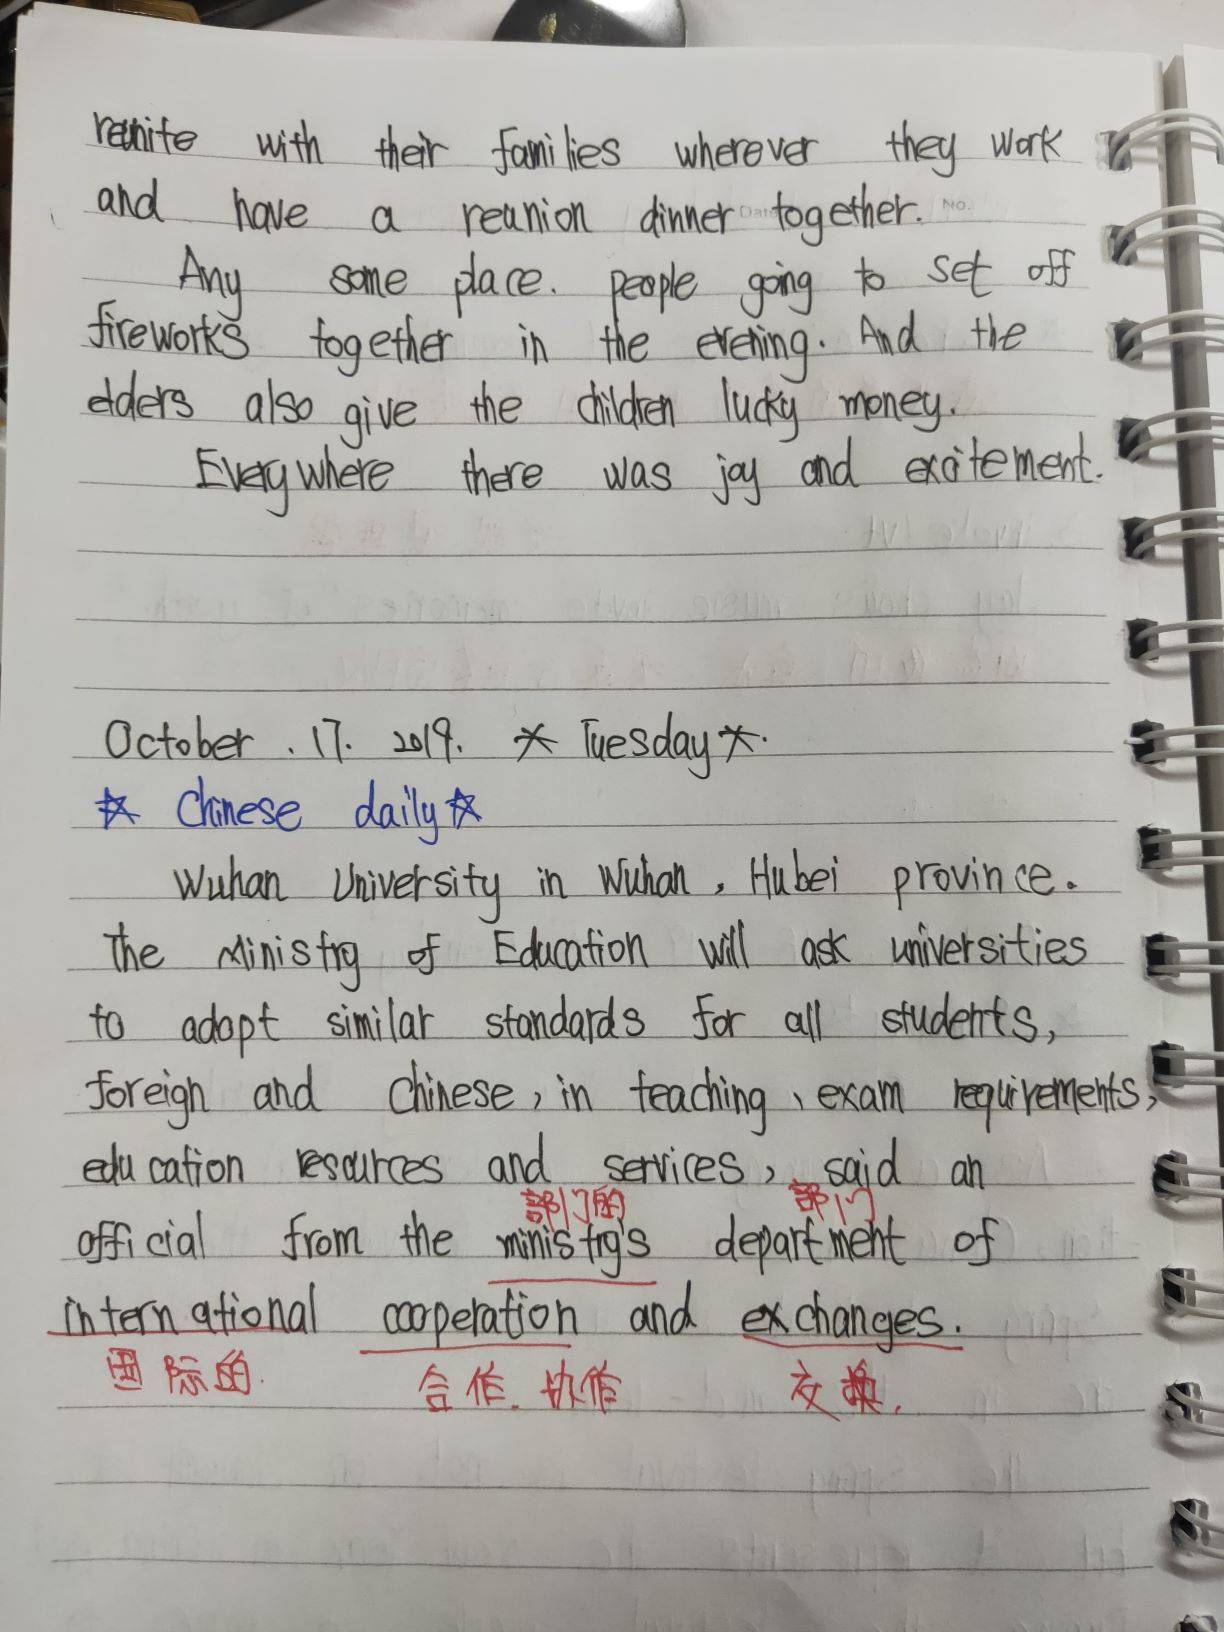 reunite with their families wherever they work
and have a reunion dinner together.
Any some place. people going to set off
fireworks together in the evening. And the
elders also give the children lucky money.
Everywhere there was joy and excitement.
October . 17. 2019. * Tuesday *.
☆ Chinese daily ☆
Wuhan University in Wuhan, Hubei province.
The Ministry of Education will ask universities
to adopt similar standards for all students,
foreign and Chinese, in teaching, exam requirements,
education resources and services, said an
部门的 部门
official from the ministry's department of
international cooperation and exchanges.
国际的. 合作. 协作 交换.